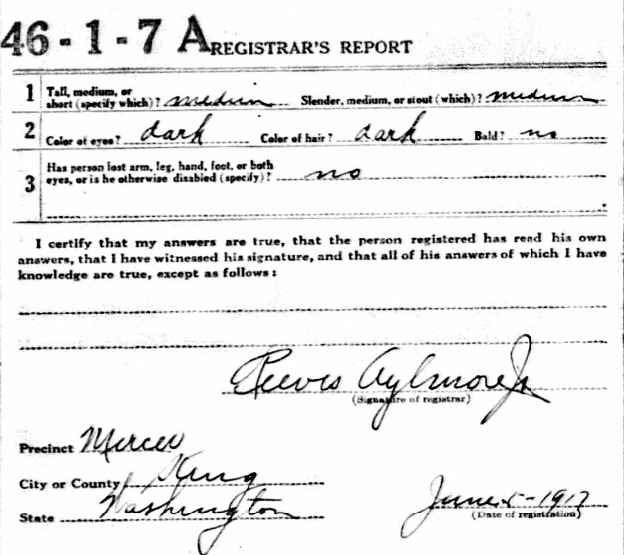 46-1-7 A REGISTRAR'S REPORT
1 Tall, medium, or short (specify which)? medium Slender, medium, or stout (which)? medium
2 Color of eyes? dark Color of hair? dark Bald? no
3 Has person lost arm, leg, hand, foot, or both
eyes, or is he otherwise disabled (specify)? no
I certify that my answers are true, that the person registered has read his own
answers, that I have witnessed his signature, and that all of his answers of which I have
knowledge are true, except as follows:
Reeves Aylmore Jr
(Signature of registrar)
Precinct Mercer
City or County King
State Washington June 5-1917
(Date of registration)